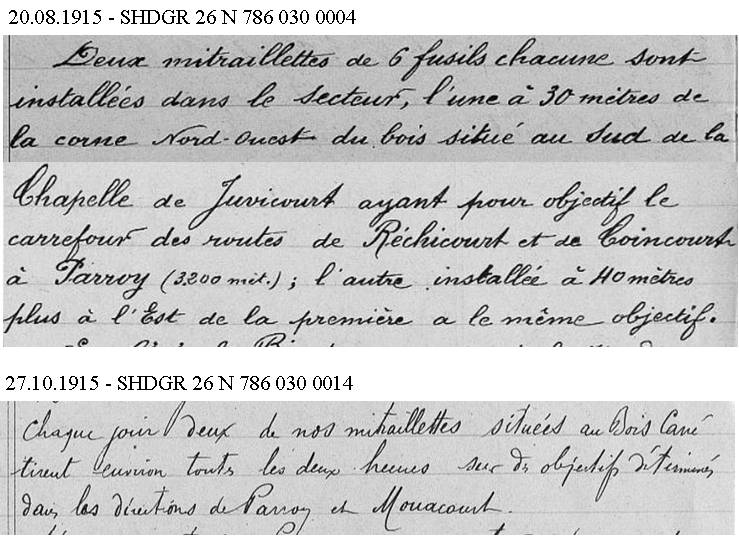 20.08.1915 - SHDGR 26 N 786 030 0004
Deux mitraillettes de 6 fusils chacune sont
installées dans le secteur, l'une à 30 mètres de
la corne Nord-Ouest du bois situé au Sud de la
Chapelle de Juvicourt ayant pour objectif le
carrefour des routes de Réchicourt et de Coincourt
à Parroy (3.200 mèt.) ; l'autre installée à 40 mètres
plus à l'Est de la première a le même objectif.
27.10.1915 - SHDGR 26 N 786 030 0014
Chaque jour deux de nos mitraillettes situées au Bois Carré
tirent environ toutes les deux heures sur des objectifs déterminés
dans les directions de Parroy et Mouacourt.